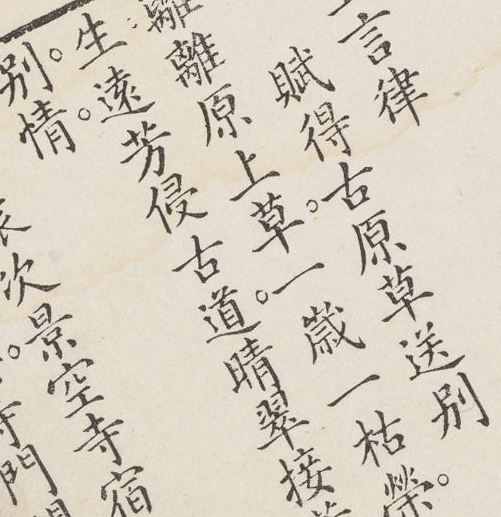 言律
賦得古原草送別
離離原上草。一嵗一枯榮。
生遠芳侵古道。晴翠接
別。情。
次景空寺宿
寺門